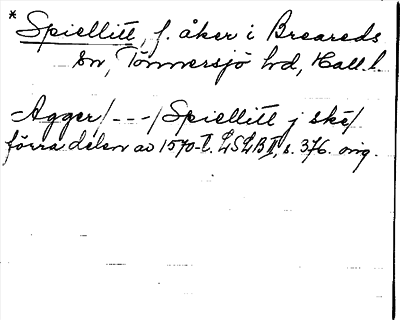 * Spiellitt, f. åker i Breareds
sn, Tönnersjö hd, Hall.l.
Agger/---/Spiellitt j ske/
förra delen av 1570-t. LSLB II, s. 376. orig.